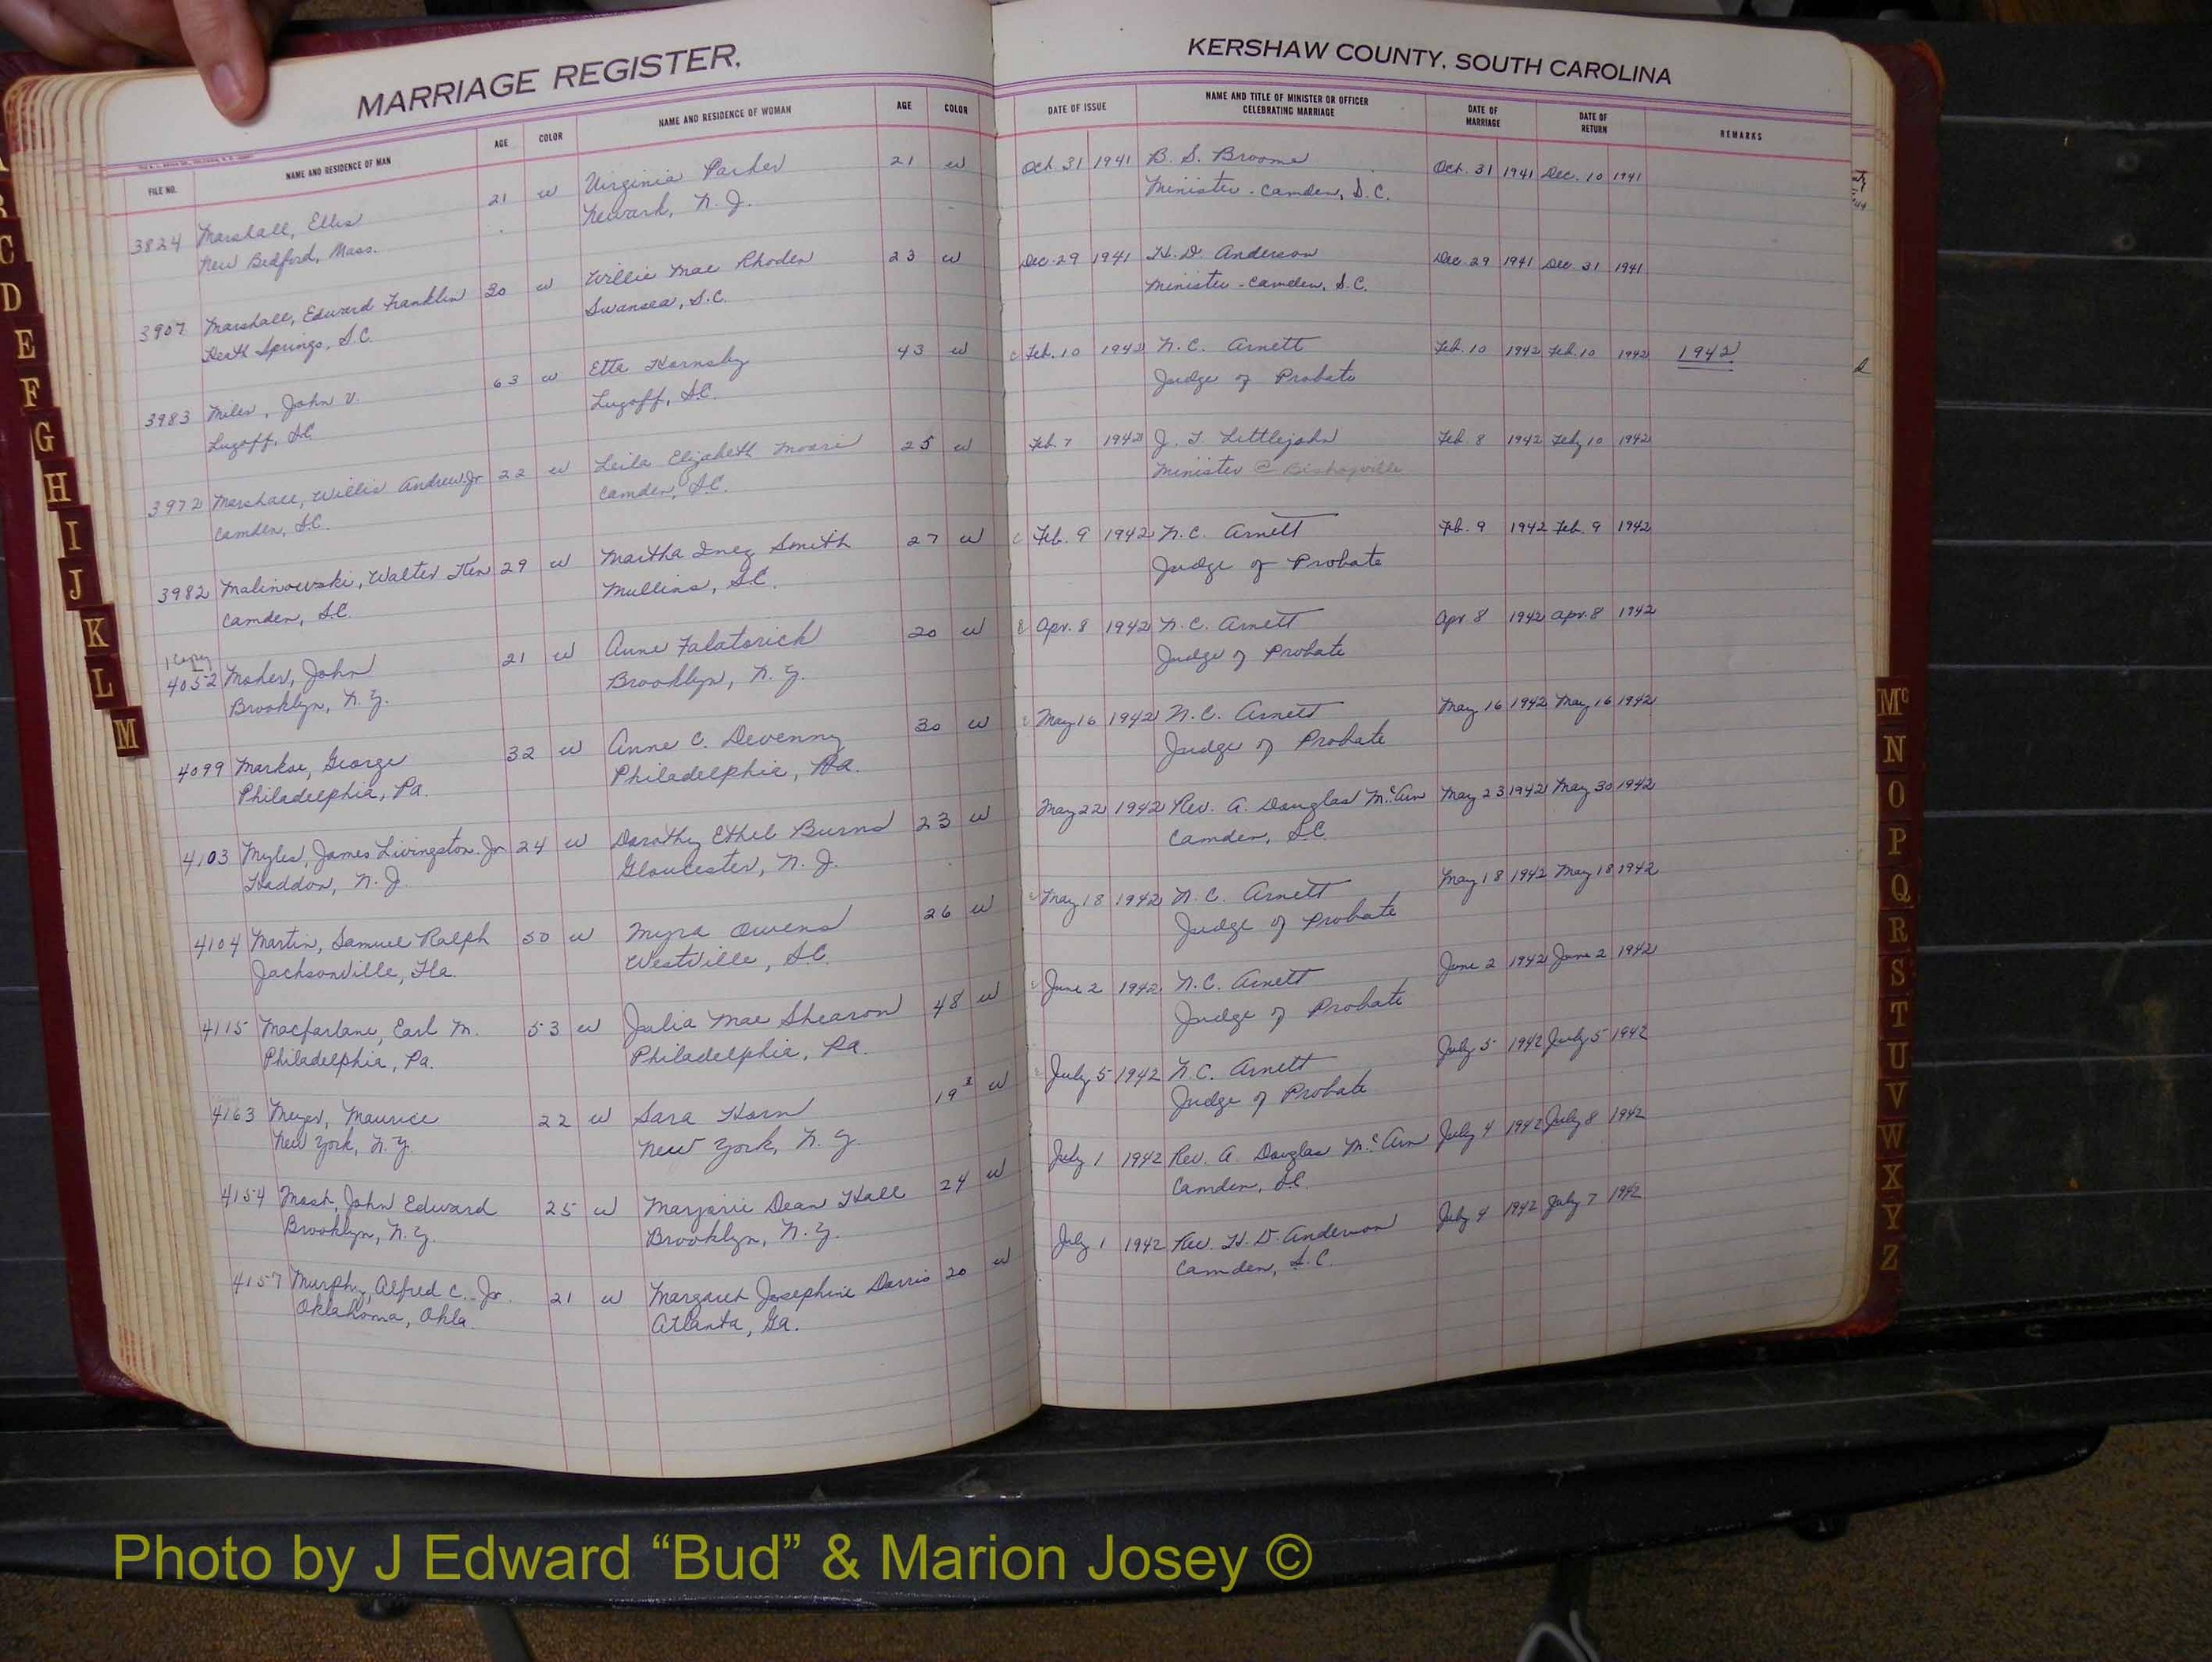 MARRIAGE REGISTER,
KERSHAW COUNTY, SOUTH CAROLINA
FILE NO. NAME AND RESIDENCE OF MAN AGE COLOR NAME AND RESIDENCE OF WOMAN AGE COLOR DATE OF ISSUE NAME AND TITLE OF MINISTER OR OFFICER CELEBRATING MARRIAGE DATE OF MARRIAGE DATE OF RETURN REMARKS
3824 Marshall, Ellis 21 w Virginia Parker 21 w Oct 31 1941 B. S. Broome Oct. 31 1941 Dec. 10 1941
New Bedford, Mass. Newark, N. J. Minister - Camden, S.C.
3907 Marshall, Edward Franklin 30 w Willie Mae Rhoden 23 w Dec. 29 1941 H. D. Anderson Dec 29 1941 Dec. 31 1941
Heath Springs, S.C. Swansea, S.C. Minister - Camden, S.C.
3983 Miles, John V. 63 w Etta Hornsby 43 w c Feb. 10 1942 N. C. Arnett Feb. 10 1942 Feb. 10 1942 1942
Lugoff, S.C. Lugoff, S.C. Judge of Probate
3972 Marshall, Willis Andrew Jr 22 w Leila Elizabeth Moore 25 w Feb. 7 1942 J. T. Littlejohn Feb. 8 1942 Feby 10 1942
Camden, S.C. Camden, S.C. Minister @ Bishopville
3982 Malinowski, Walter Ken 29 w Martha Inez Smith 27 w c Feb. 9 1942 N. C. Arnett Feb. 9 1942 Feb. 9 1942
Camden, S.C. Mullins, S.C. Judge of Probate
1 Copy
4052 Maher, John 21 w Anne Falatorick 20 w Apr. 8 1942 N. C. Arnett Apr 8 1942 Apr. 8 1942
Brooklyn, N. Y. Brooklyn, N. Y. Judge of Probate
4099 Markoe, George 32 w Anne C. Devenny 30 w May 16 1942 N. C. Arnett May 16 1942 May 16 1942
Philadelphia, Pa. Philadelphia, Pa. Judge of Probate
4103 Myles, James Livingston Jr 24 w Dorothy Ethel Burns 23 w May 22 1942 Rev. A. Douglas McArn May 23 1942 May 30 1942
Haddon, N. J. Gloucester, N. J. Camden, S.C.
4104 Martin, Samuel Ralph 50 w Myra Owens 26 w c May 18 1942 N. C. Arnett May 18 1942 May 18 1942
Jacksonville, Fla. Westville, S.C. Judge of Probate
4115 Macfarlane, Earl M. 53 w Julia Mae Shearon 48 w c June 2 1942 N. C. Arnett June 2 1942 June 2 1942
Philadelphia, Pa. Philadelphia, Pa. Judge of Probate
4163 Meyer, Maurice 22 w Sara Horn 19 w July 5 1942 N. C. Arnett July 5 1942 July 5 1942
New York, N. Y. New York, N. Y. Judge of Probate
4154 Mash, John Edward 25 w Marjorie Dean Hall 24 w July 1 1942 Rev. A. Douglas McArn July 4 1942 July 8 1942
Brooklyn, N. Y. Brooklyn, N. Y. Camden, S.C.
4157 Murphy, Alfred C. Jr. 21 w Margaret Josephine Darris 20 w July 1 1942 Rev. H. D. Anderson July 4 1942 July 7 1942
Oklahoma, Okla. Atlanta, Ga. Camden, S.C.
C
D
E
F
G
H
I
J
K
L
M
Mc
N
O
P
Q
R
S
T
U
V
W
X
Y
Z
Photo by J Edward “Bud” & Marion Josey ©